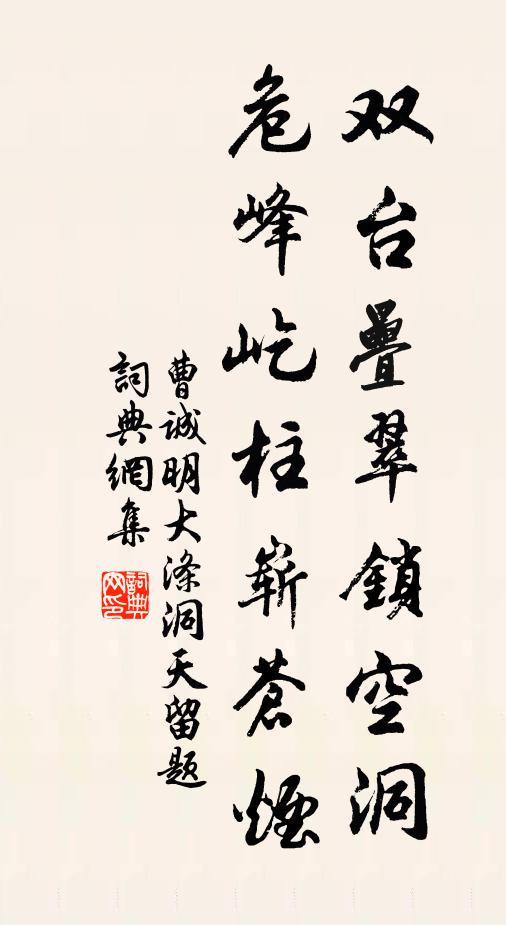 双台疊翠鎖空洞
危峰屹柱嶄蒼煙
曹诚明大涤洞天留题
詞典網集
詞典網印